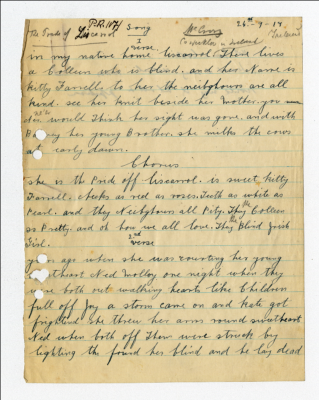 P.R. 1174 Song 26-9-14
The Pride of Liscarrol
1 verse
in my native home Liscarrol There lives
a Colleen who is blind, and her Name is
kitty Farrells to her the neibghours are all
kind. see her knit beside her Mother you
would think her sight was gone, and with
her young Brother, she milks the cows
at early dawn.
Chorus
she is the Pride off liscarrol. is sweet kitty
Farrell, cheeks as red as roses, Teeth as white as
Pearl, and they Neibghours all Pity. They Colleen
so Pretty, and oh how we all love. They Blind Irish
Girl.
2nd verse
years ago when out she was courting her young
sweetheart Ned Molloy one night when they
were both out walking hearts like Children
full off Joy, a storm came on and kate got
frightend she threw her arms round sweetheart
Ned when both off Them were struck by
lighting the found her blind and he lay dead